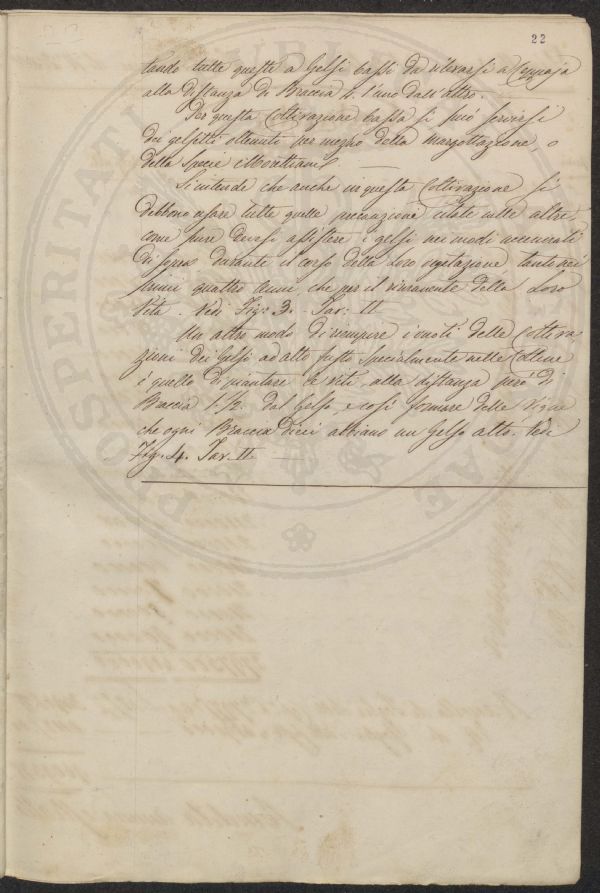 22
tando tutte queste a Gelsi bassi da rilevarsi a Ceppaja
alla distanza di Braccia 4. l'uno dall'altro.
Per questa Coltivazione bassa si può servirsi
dei gelsetti ottenuti per mezzo della Margottazione, o
della specie
S'intende che anche in questa Coltivazione si
debbono usare tutte quelle precauzioni citate nelle altre,
come pure devesi assistere i gelsi nei modi accennati
di sopra durante il corso della Loro vegetazione tanto nei
primi quattro anni che per il rimanente della Loro
Vita. Vedi Fig: 3. Tav: II
Un altro modo di riempire i vuoti delle Coltiva
zioni dei Gelsi ad alto fusto specialmente nelle Colline
è quello di piantare le viti alla distanza però di
Braccia 1.1/2. dal Gelso, e così formare delle Vigne
che ogni Braccia Dieci abbiano un Gelso alto. Vedi
Fig. 4. Tav. II.
PROSPERITATI